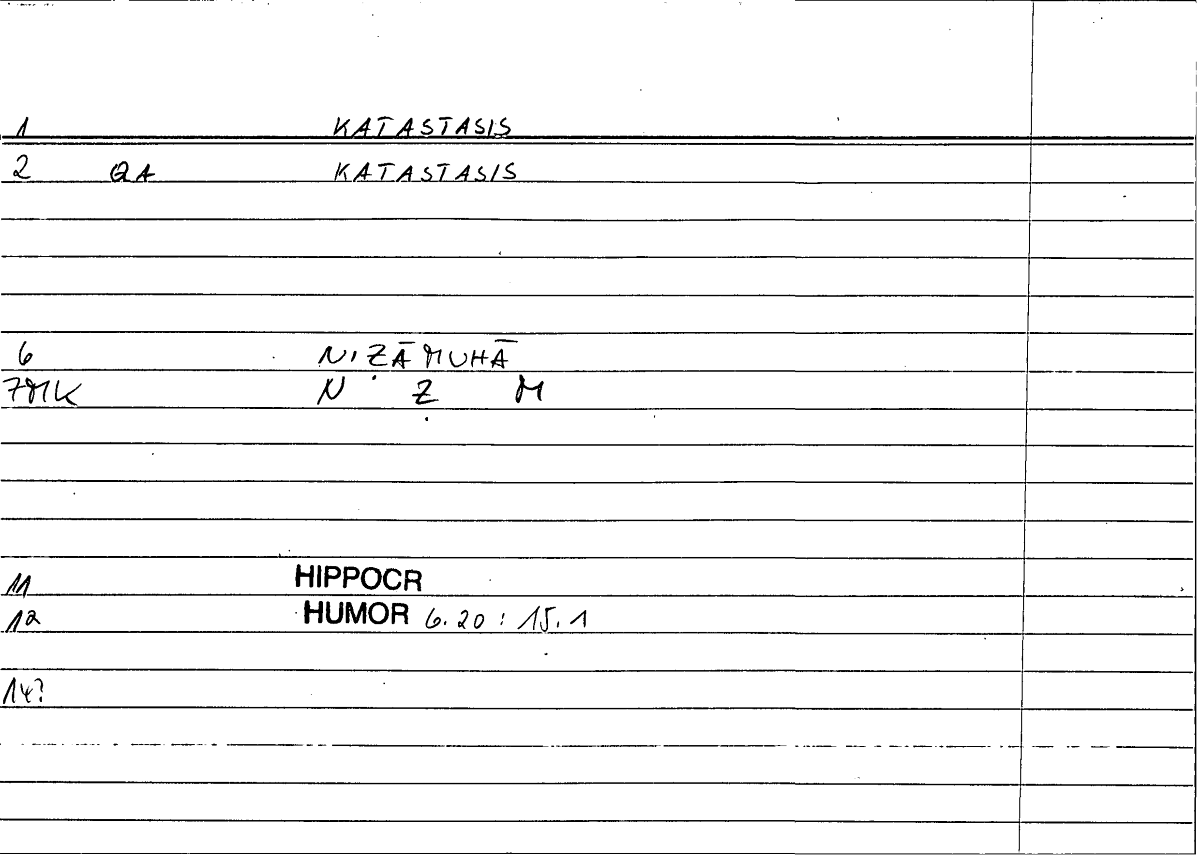 1 KATASTASIS
2 QA KATASTASIS
6 NIẒĀMUHĀ
7MK N Ẓ M
11 HIPPOCR
12 HUMOR 6.20 : 15.1
14?